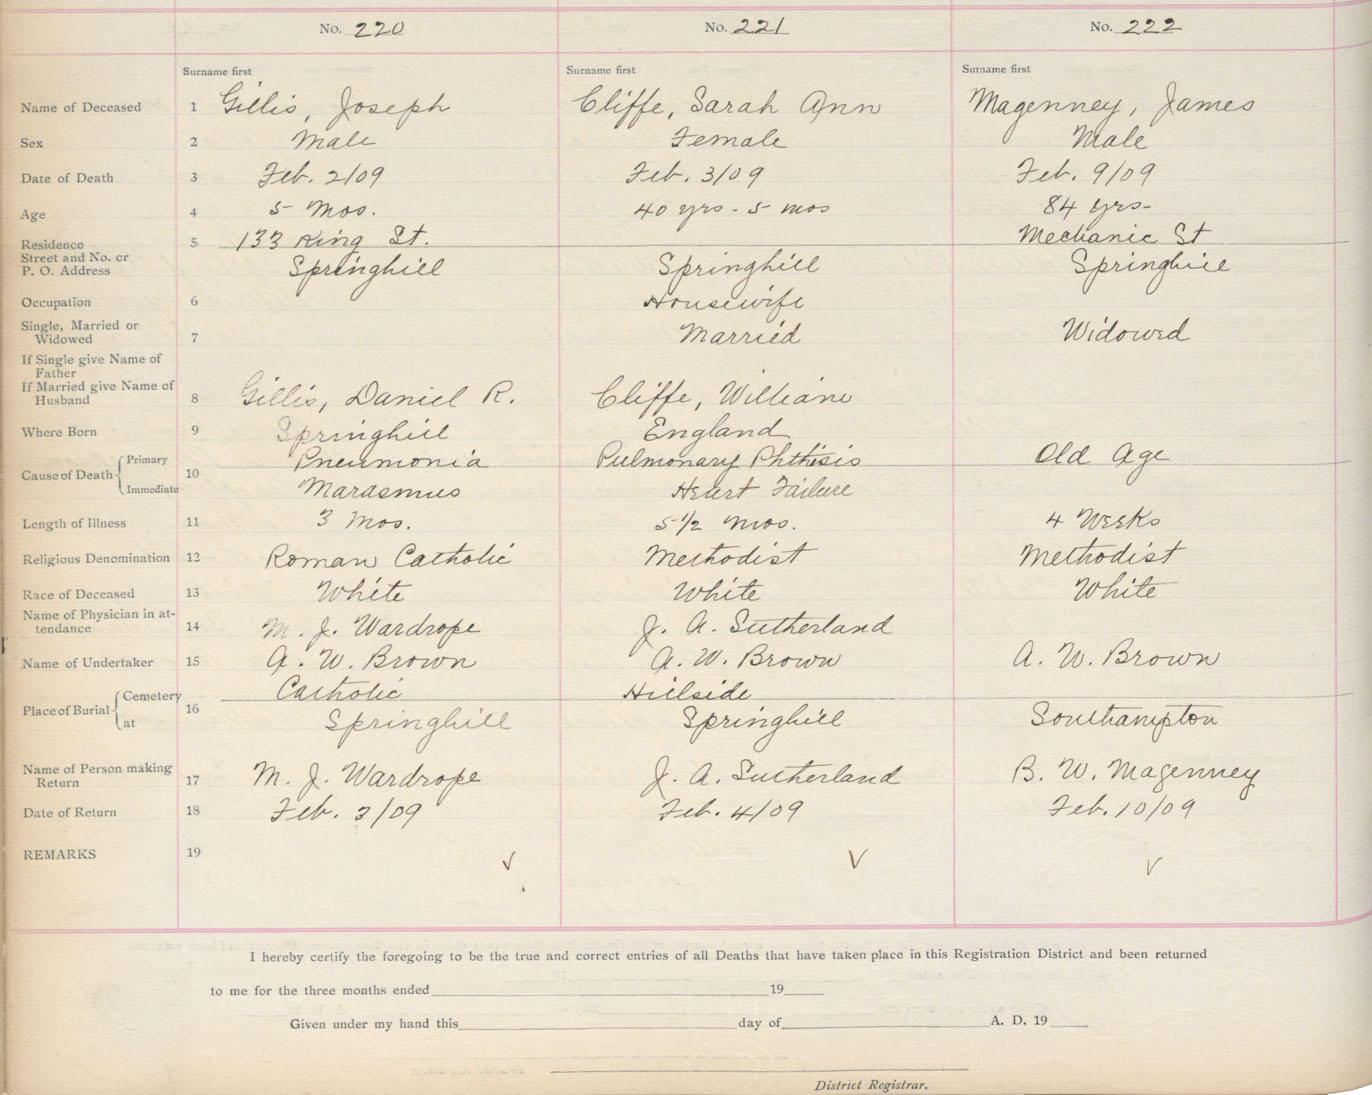 No. 220 No. 221 No. 222
Surname first Surname first Surname first
Name of Deceased 1 Gillis, Joseph Cliffe, Sarah Ann Magenney, James
Sex 2 Male Female Male
Date of Death 3 Feb. 2/09 Feb. 3/09 Feb. 9/09
Age 4 5 Mos. 40 yrs - 5 mos 84 yrs-
Residence 5 133 King St. Mechanic St
Street and No. or
P. O. Address Springhill Springhill Springhill
Occupation 6 Housewife
Single, Married or
Widowed 7 Married Widowed
If Single give Name of
Father
If Married give Name of
Husband 8 Gillis, Daniel R. Cliffe, William
Where Born 9 Springhill England
Cause of Death 10 Primary Pneumonia Pulmonary Phthisis Old Age
Immediate Marasmus Heart Failure
Length of Illness 11 3 Mos. 5 1/2 mos. 4 Weeks
Religious Denomination 12 Roman Catholic Methodist Methodist
Race of Deceased 13 White White White
Name of Physician in at-
tendance 14 M. J. Wardrope J. A. Sutherland
Name of Undertaker 15 A. W. Brown A. W. Brown A. W. Brown
Place of Burial 16 Cemetery Catholic Hillside
at Springhill Springhill Southampton
Name of Person making
Return 17 M. J. Wardrope J. A. Sutherland B. W. Magenney
Date of Return 18 Feb. 3/09 Feb. 4/09 Feb. 10/09
REMARKS 19
I hereby certify the foregoing to be the true and correct entries of all Deaths that have taken place in this Registration District and been returned
to me for the three months ended 19
Given under my hand this day of A. D. 19
District Registrar.